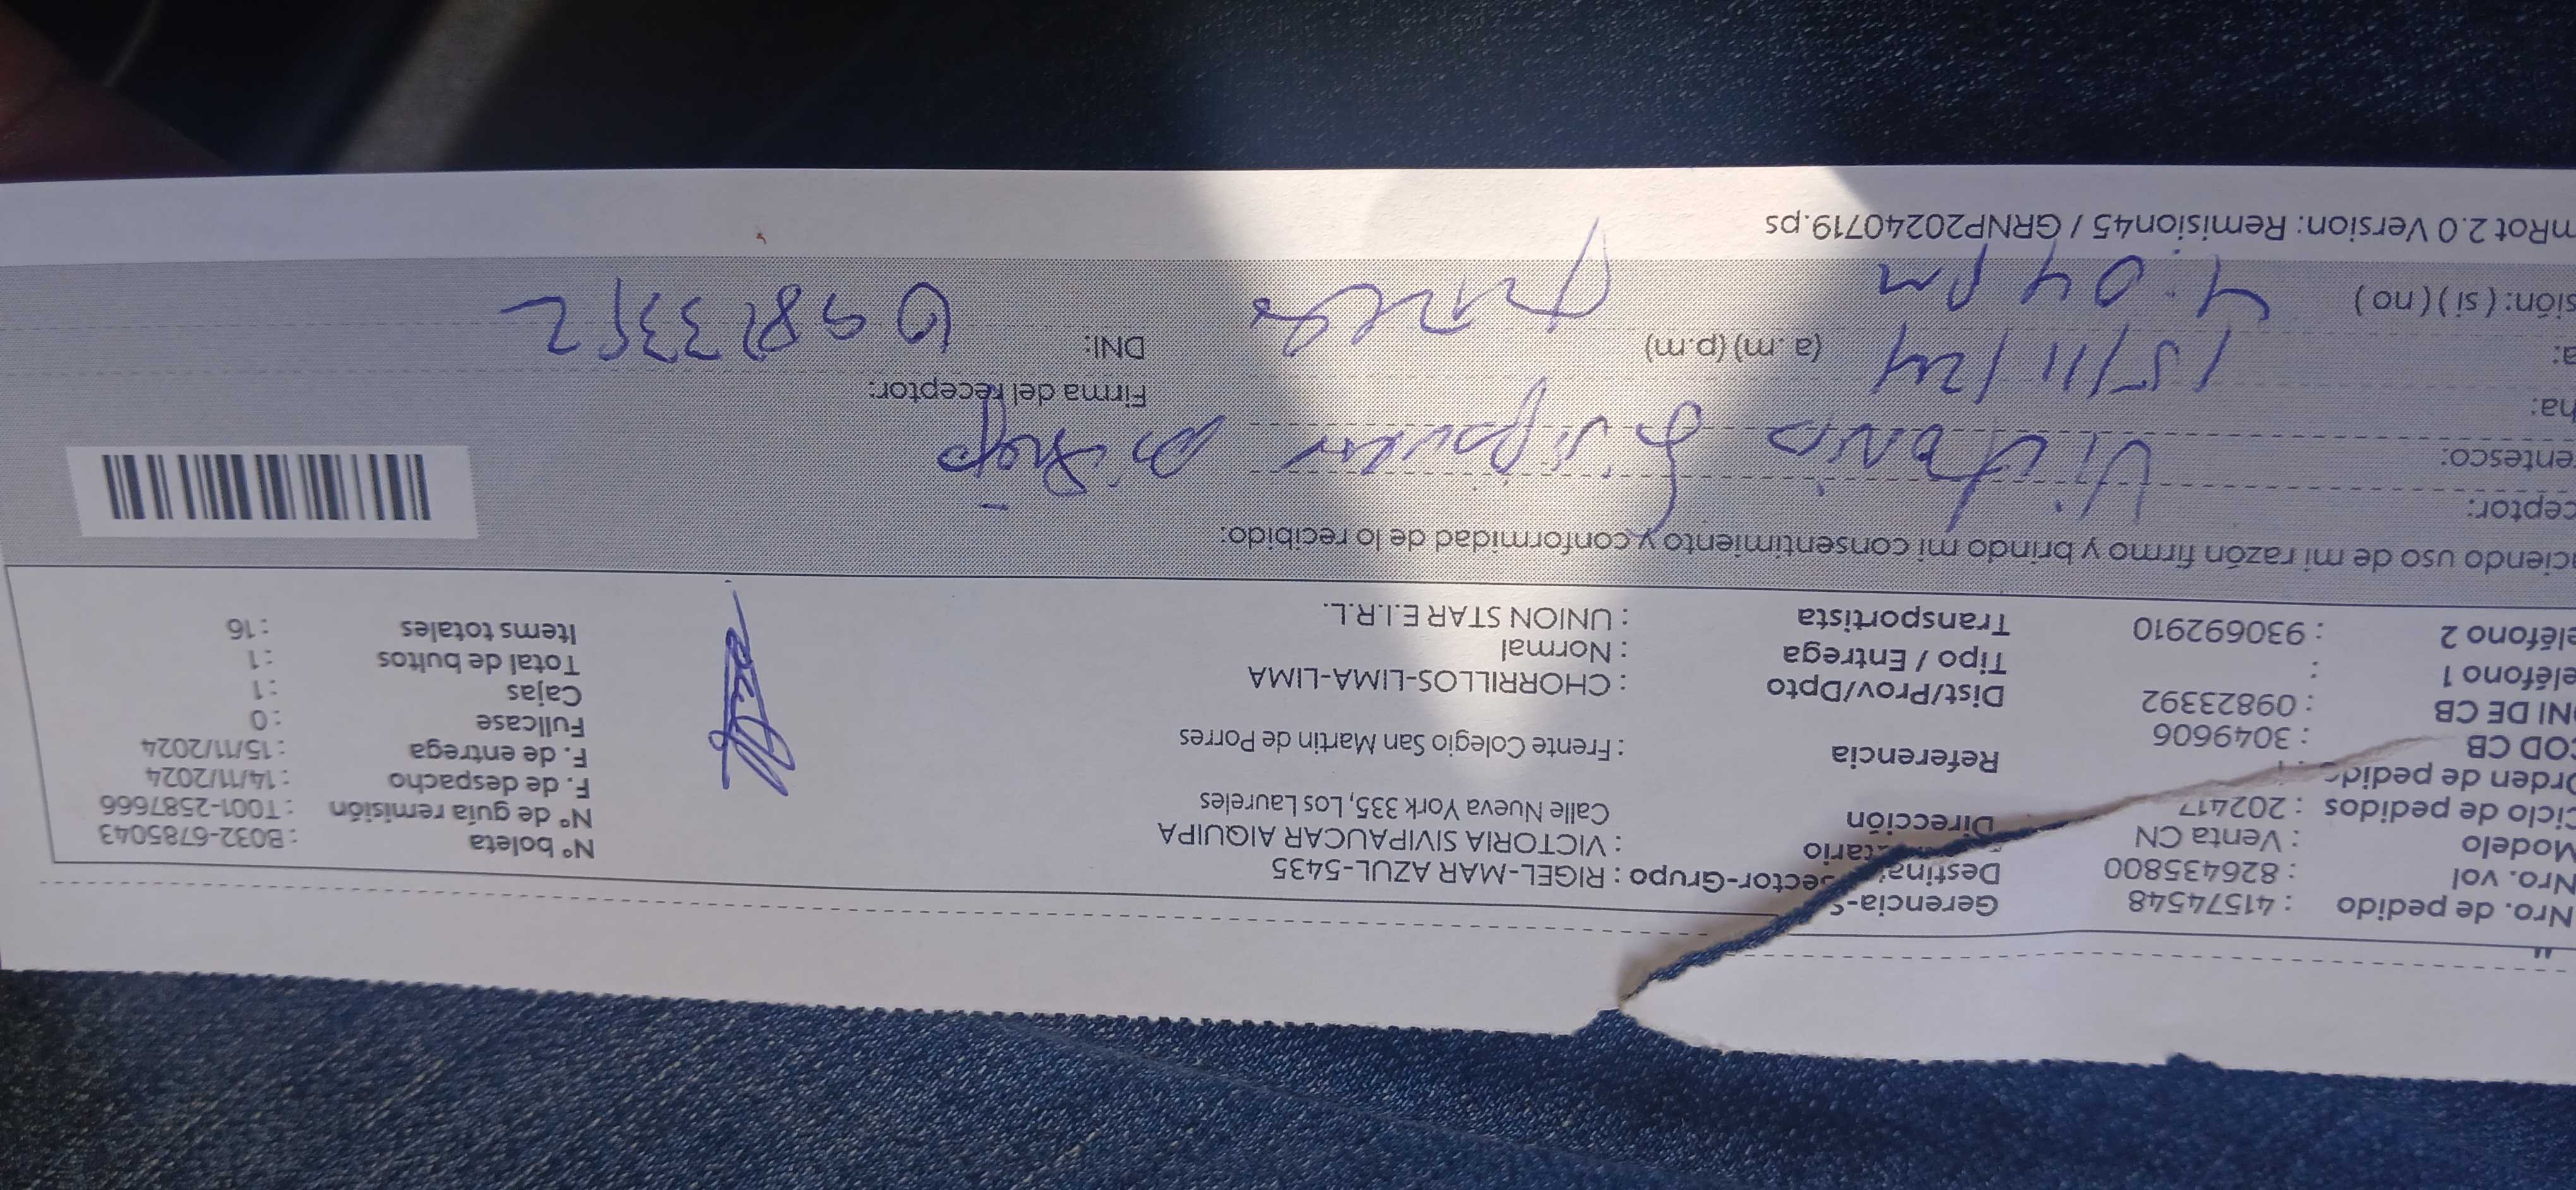 Nro. de pedido : 41574548 Gerencia-S ector-Grupo : RIGEL-MAR AZUL-5435 N° boleta : B032-6785043
Nro. vol : 826435800 Destina tario : VICTORIA SIVIPAUCAR AIQUIPA N° de guía remisión : T001-2587666
Modelo : Venta CN Dirección Calle Nueva York 335, Los Laureles F. de despacho : 14/11/2024
Ciclo de pedidos : 202417 F. de entrega : 15/11/2024
Orden de pedido : Referencia : Frente Colegio San Martin de Porres Fullcase : 0
COD CB : 3049606 Cajas : 1
NI DE CB : 09823392 Dist/Prov/Dpto : CHORRILLOS-LIMA-LIMA Total de bultos : 1
eléfono 1 : Tipo / Entrega : Normal Items totales : 16
eléfono 2 : 930692910 Transportista : UNION STAR E.I.R.L.
aciendo uso de mi razón firmo y brindo mi consentimiento y conformidad de lo recibido:
ceptor: Victoria Sivipaucar
entesco:
ha: 15/11/24 Firma del receptor:
a: 4:04 pm (a. m) (p.m) DNI:
sión: ( si ) ( no )
mRot 2.0 Version: Remision45 / GRNP20240719.ps